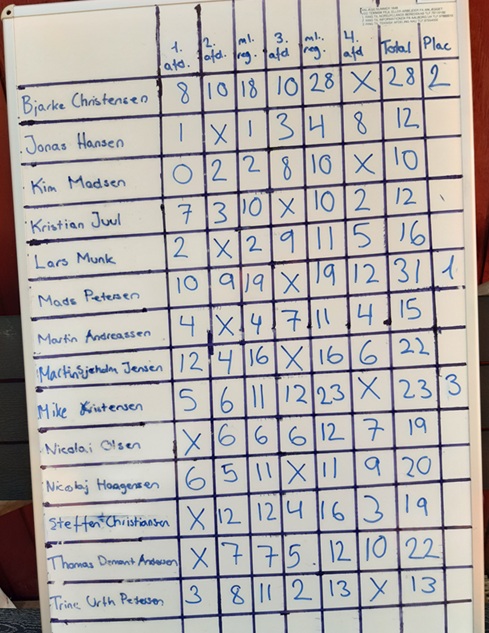 1. afd. 2. afd. ml. reg. 3. afd ml. reg. 4. afd Total Plac
Bjarke Christensen 8 10 18 10 28 X 28 2
Jonas Hansen 1 X 1 3 4 8 12
Kim Madsen 0 2 2 8 10 X 10
Kristian Juul 7 3 10 X 10 2 12
Lars Munk 2 X 2 9 11 5 16
Mads Petersen 10 9 19 X 19 12 31 1
Martin Andreassen 4 X 4 7 11 4 15
Martin Sjeholm Jensen 12 4 16 X 16 6 22
Mike Kristensen 5 6 11 12 23 X 23 3
Nicolai Olsen X 6 6 6 12 7 19
Nicolaj Haagensen 6 5 11 X 11 9 20
Steffen Christiansen X 12 12 4 16 3 19
Thomas Demant Andersen X 7 7 5 12 10 22
Trine Urth Petersen 3 8 11 2 13 X 13